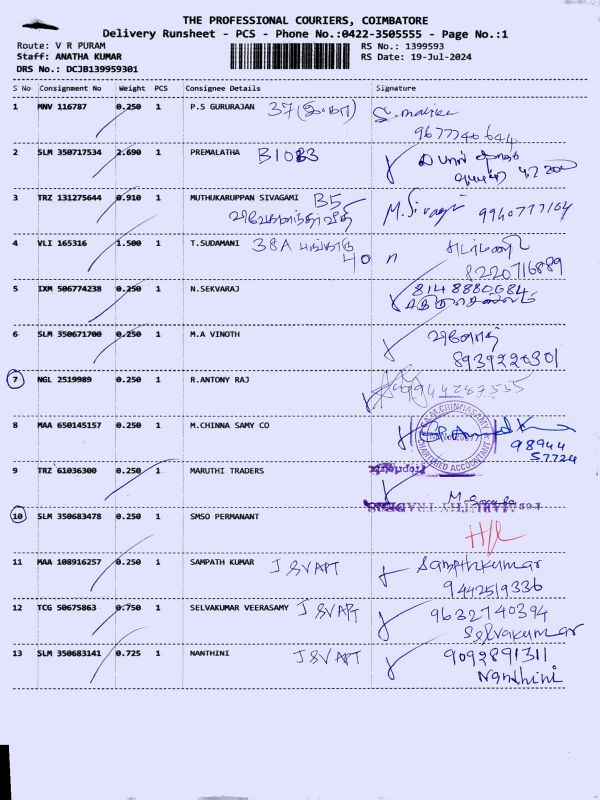 THE PROFESSIONAL COURIERS, COIMBATORE
Delivery Runsheet - PCS - Phone No.:0422-3505555 - Page No.:1
Route: V R PURAM
Staff: ANATHA KUMAR
DRS No.: DCJB139959301
RS No.: 1399593
RS Date: 19-Jul-2024
S No Consignment No Weight PCS Consignee Details Signature
1 MNV 116787 0.250 1 P.S GURURAJAN 37
9677740644
2 SLM 350717534 2.690 1 PREMALATHA
3 TRZ 131275644 0.910 1 MUTHUKARUPPAN SIVAGAMI B5 M.Sivagi 9940777164
4 VLI 165316 1.500 1 T.SUDAMANI 38A
40
8220716889
5 IXM 506774238 0.250 1 N.SEKVARAJ 8148880684
6 SLM 350671700 0.250 1 M.A VINOTH
8939220301
7 NGL 2519989 0.250 1 R.ANTONY RAJ
8 MAA 650145157 0.250 1 M.CHINNA SAMY CO
CHARTERED ACCOUNTANT
98944
57724
9 TRZ 61036300 0.250 1 MARUTHI TRADERS
Proprietor
For MARUTHY TRADERS
10 SLM 350683478 0.250 1 SMSO PERMANANT
H/L
11 MAA 108916257 0.250 1 SAMPATH KUMAR J S V APT Sampthkumar
9442519336
12 TCG 50675863 0.750 1 SELVAKUMAR VEERASAMY J S V APT 9632740394
Selvakumar
13 SLM 350683141 0.725 1 NANTHINI J S V APT 9092891311
Nandhini